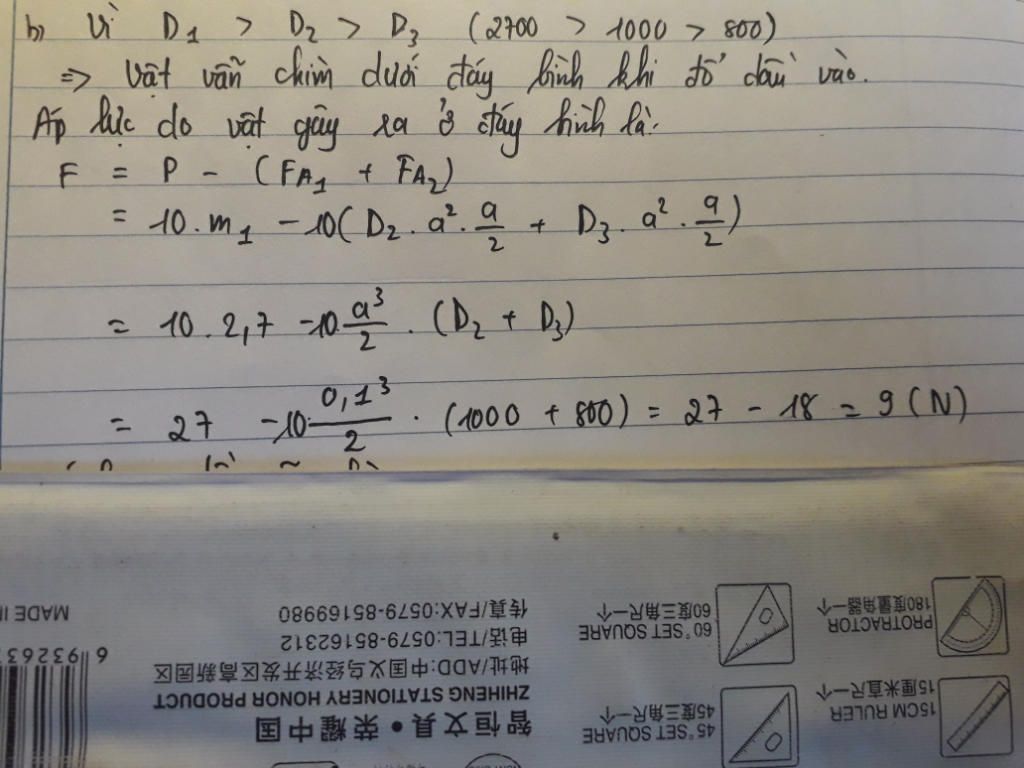 b) Vì D₁ > D₂ > D₃ (2700 > 1000 > 800)
=> Vật vẫn chìm dưới đáy bình khi đổ dầu vào.
Áp lực do vật gây ra ở đáy bình là:
F = P - (FA₁ + FA₂)
= 10.m₁ - 10(D₂.a².a/2 + D₃.a².a/2)
= 10.2,7 - 10.a³/2.(D₂ + D₃)
= 27 - 10.0,1³/2.(1000 + 800) = 27 - 18 = 9 (N)
MADE IN
6 93263
传真/FAX:0579-85169980
电话/TEL:0579-85162312
地址/ADD:中国义乌经济开发区高新园区
ZHIHENG STATIONERY HONOR PRODUCT
智恒文具•荣耀中国
60°SET SQUARE
60度三角尺一个
45°SET SQUARE
45度三角尺一个
PROTRACTOR
180度量角器一个
15CM RULER
15厘米直尺一个